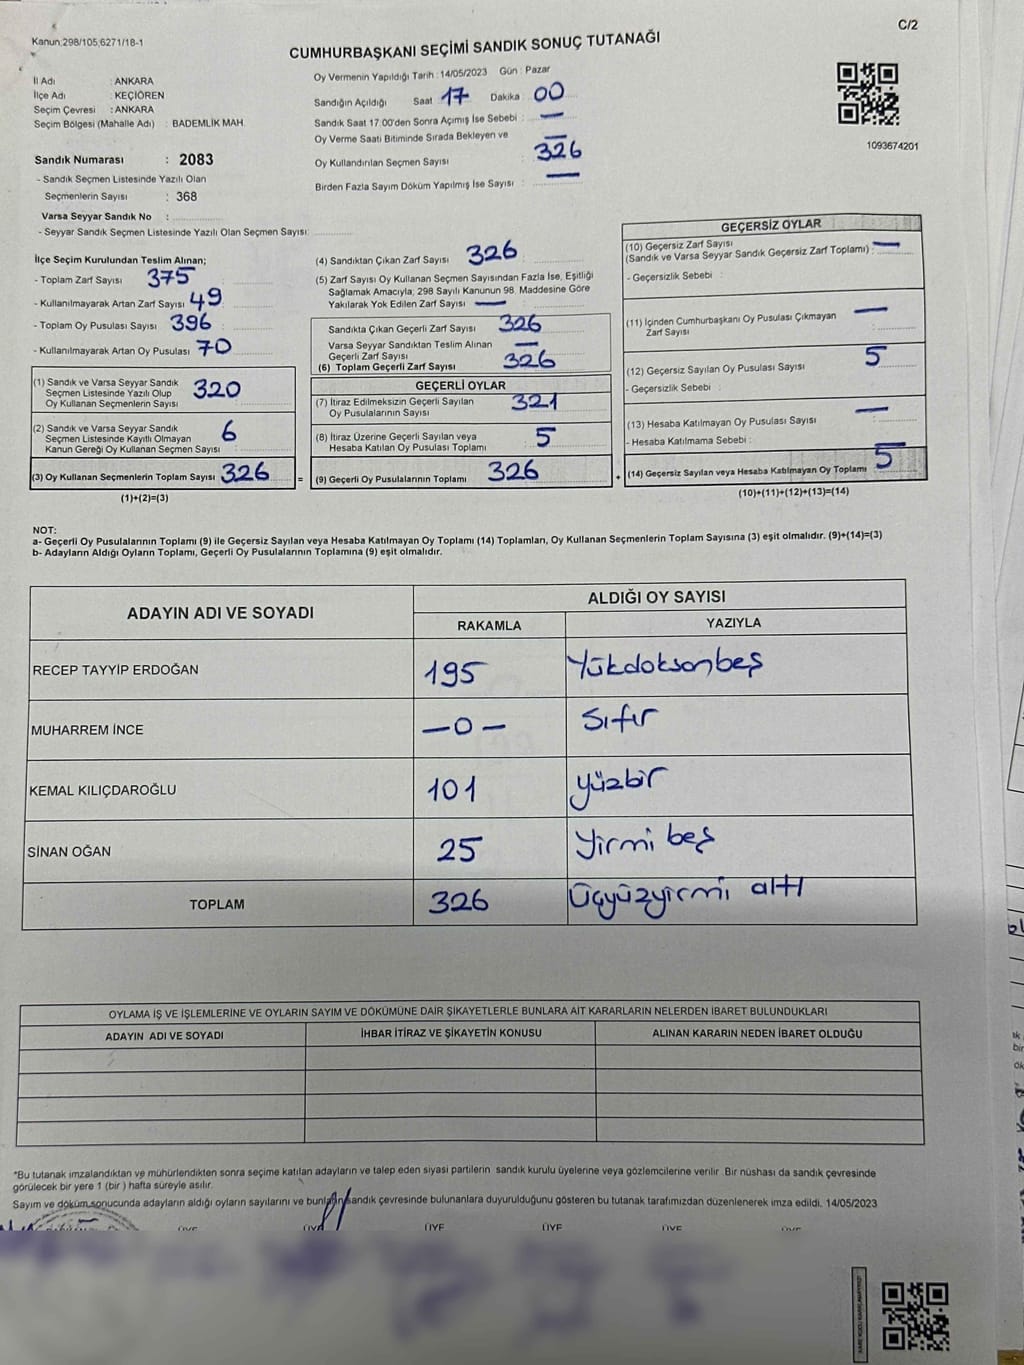 C/2
Kanun;298/105;6271/18-1
CUMHURBAŞKANI SEÇİMİ SANDIK SONUÇ TUTANAĞI
İl Adı : ANKARA
İlçe Adı : KEÇİÖREN
Seçim Çevresi : ANKARA
Seçim Bölgesi (Mahalle Adı) : BADEMLİK MAH.
Sandık Numarası : 2083
- Sandık Seçmen Listesinde Yazılı Olan
Seçmenlerin Sayısı : 368
Varsa Seyyar Sandık No :
- Seyyar Sandık Seçmen Listesinde Yazılı Olan Seçmen Sayısı:
Oy Vermenin Yapıldığı Tarih : 14/05/2023 Gün : Pazar
Sandığın Açıldığı Saat 17 Dakika 00
Sandık Saat 17:00'den Sonra Açımış İse Sebebi : —
Oy Verme Saati Bitiminde Sırada Bekleyen ve —
Oy Kullandırılan Seçmen Sayısı : 326
Birden Fazla Sayım Döküm Yapılmış İse Sayısı : —
1093674201
İlçe Seçim Kurulundan Teslim Alınan;
- Toplam Zarf Sayısı 375
- Kullanılmayarak Artan Zarf Sayısı 49
- Toplam Oy Pusulası Sayısı 396
- Kullanılmayarak Artan Oy Pusulası 70
(1) Sandık ve Varsa Seyyar Sandık
Seçmen Listesinde Yazılı Olup
Oy Kullanan Seçmenlerin Sayısı 320
(2) Sandık ve Varsa Seyyar Sandık
Seçmen Listesinde Kayıtlı Olmayan
Kanun Gereği Oy Kullanan Seçmen Sayısı 6
(3) Oy Kullanan Seçmenlerin Toplam Sayısı 326 =
(1)+(2)=(3)
(4) Sandıktan Çıkan Zarf Sayısı 326
(5) Zarf Sayısı Oy Kullanan Seçmen Sayısından Fazla İse, Eşitliği
Sağlamak Amacıyla, 298 Sayılı Kanunun 98. Maddesine Göre
Yakılarak Yok Edilen Zarf Sayısı —
Sandıkta Çıkan Geçerli Zarf Sayısı 326
Varsa Seyyar Sandıktan Teslim Alınan
Geçerli Zarf Sayısı —
(6) Toplam Geçerli Zarf Sayısı 326
GEÇERLİ OYLAR
(7) İtiraz Edilmeksizin Geçerli Sayılan
Oy Pusulalarının Sayısı 321
(8) İtiraz Üzerine Geçerli Sayılan veya
Hesaba Katılan Oy Pusulası Toplamı 5
(9) Geçerli Oy Pusulalarının Toplamı 326 +
GEÇERSİZ OYLAR
(10) Geçersiz Zarf Sayısı
(Sandık ve Varsa Seyyar Sandık Geçersiz Zarf Toplamı) : —
- Geçersizlik Sebebi :
(11) İçinden Cumhurbaşkanı Oy Pusulası Çıkmayan
Zarf Sayısı : —
(12) Geçersiz Sayılan Oy Pusulası Sayısı 5
- Geçersizlik Sebebi :
(13) Hesaba Katılmayan Oy Pusulası Sayısı —
- Hesaba Katılmama Sebebi :
(14) Geçersiz Sayılan veya Hesaba Katılmayan Oy Toplamı 5
(10)+(11)+(12)+(13)=(14)
NOT:
a- Geçerli Oy Pusulalarının Toplamı (9) ile Geçersiz Sayılan veya Hesaba Katılmayan Oy Toplamı (14) Toplamları, Oy Kullanan Seçmenlerin Toplam Sayısına (3) eşit olmalıdır. (9)+(14)=(3)
b- Adayların Aldığı Oyların Toplamı, Geçerli Oy Pusulalarının Toplamına (9) eşit olmalıdır.
ADAYIN ADI VE SOYADI ALDIĞI OY SAYISI
RAKAMLA YAZIYLA
RECEP TAYYİP ERDOĞAN 195 Yükdoksonbeş
MUHARREM İNCE —0— Sıfır
KEMAL KILIÇDAROĞLU 101 yüzbir
SİNAN OĞAN 25 Yirmi beş
TOPLAM 326 Üçyüzyirmi altı
OYLAMA İŞ VE İŞLEMLERİNE VE OYLARIN SAYIM VE DÖKÜMÜNE DAİR ŞİKAYETLERLE BUNLARA AİT KARARLARIN NELERDEN İBARET BULUNDUKLARI
ADAYIN ADI VE SOYADI İHBAR İTİRAZ VE ŞİKAYETİN KONUSU ALINAN KARARIN NEDEN İBARET OLDUĞU
*Bu tutanak imzalandıktan ve mühürlendikten sonra seçime katılan adayların ve talep eden siyasi partilerin sandık kurulu üyelerine veya gözlemcilerine verilir. Bir nüshası da sandık çevresinde
görülecek bir yere 1 (bir) hafta süreyle asılır.
Sayım ve döküm sonucunda adayların aldığı oyların sayılarını ve bunların sandık çevresinde bulunanlara duyurulduğunu gösteren bu tutanak tarafımızdan düzenlenerek imza edildi. 14/05/2023
ÜYE ÜYE ÜYE ÜYE ÜYE ÜYE